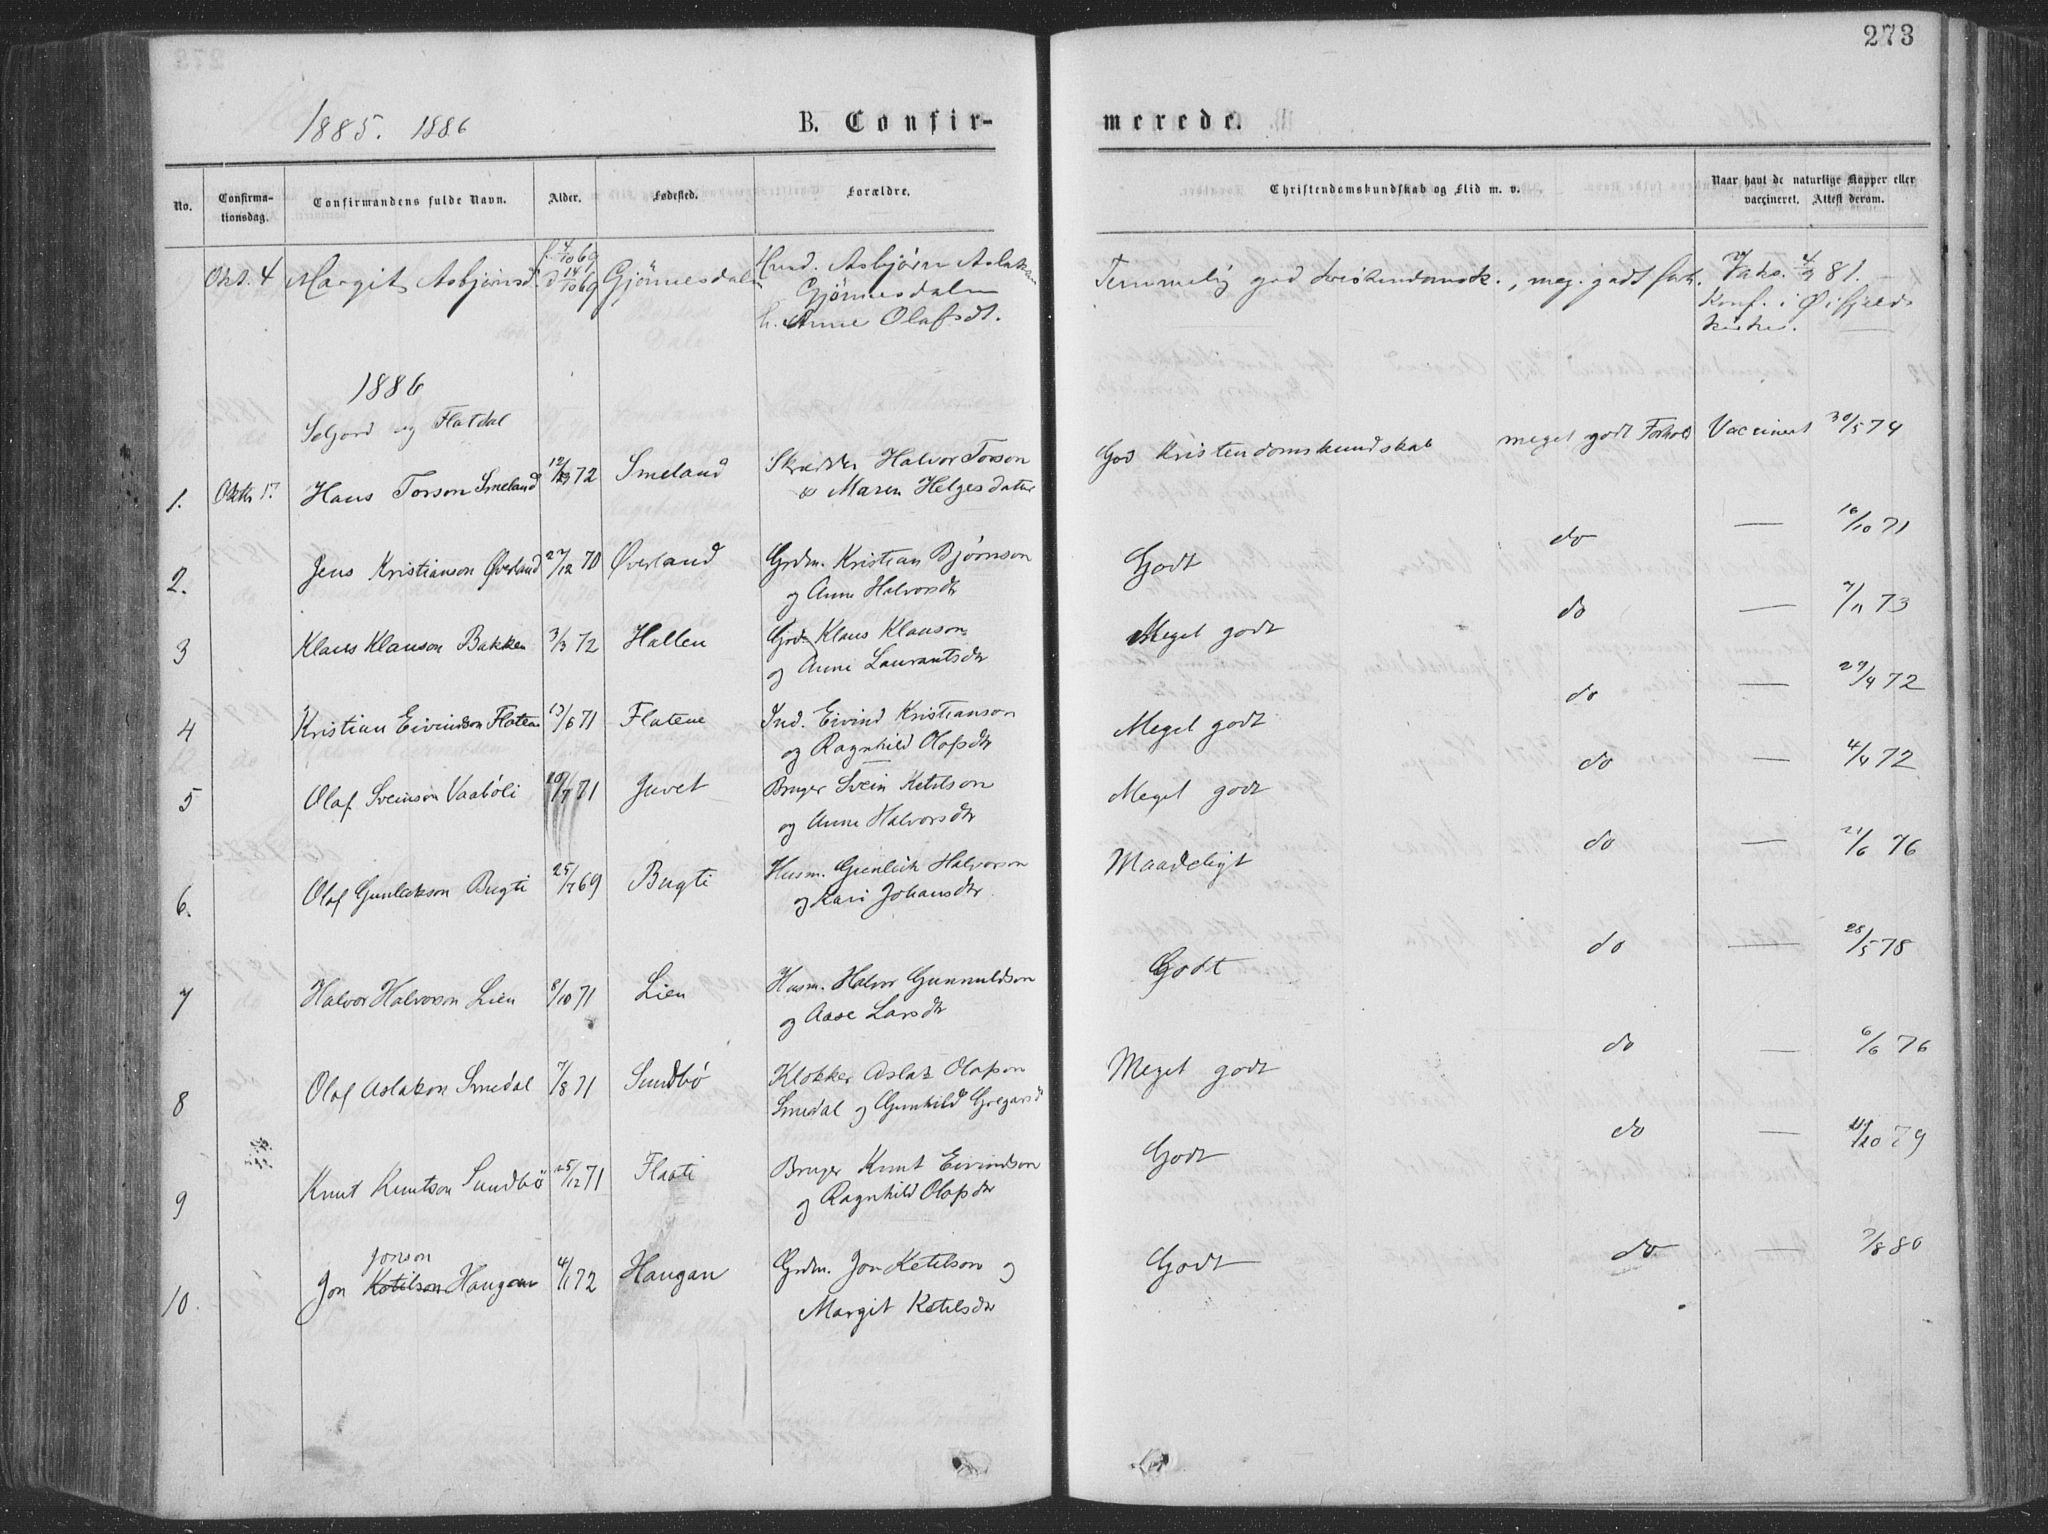 273
1885. 1886
B. Confir- merede.
No. Confirma-tionsdag. Confirmandens fulde Navn. Alder. Fødested. Forældre. Christendomskundskab og Flid m. v. Naar havt de naturlige Kopper eller vaccineret. Attest derom.
Okt. 4 Margit Asbjørnsd. f. 4/10 69 Gjönnesdalen Husd. Asbjørn Aslaksen Temmelig god kristendomsk., meg. godt forh. Vaks. 4/9 81.
d 14/10 69 Gjönnesdalen Konf. i Øifjelds
h. Anne Olafsdt. kirke.
1886
Seljord og Flatdal
1. Oktbr 17 Hans Torson Smeland 12/3 72 Smeland Skrædder Halvor Torson God Kristendomskundskab meget godt Forhold Vaccineret 30/5 74
& Maren Helgesdatter
2. Jens Kristianson Øverland 27/12 70 Øverland Grdm. Kristian Bjørnson Godt do — 16/10 71
og Anne Halvorsdtr
3 Klaus Klauson Bakken 3/3 72 Hallen Grd. Klaus Klauson Meget godt do — 7/11 73
og Anne Laurantsdtr
4 Kristian Eivindson Flatene 13/6 71 Flatene Ind. Eivind Kristianson Meget godt do — 29/4 72
og Ragnhild Olafsdtr
5 Olaf Sveinson Vaaböli 20/7 71 Juvet Bruger Svein Ketilson Meget godt do — 4/4 72
og Anne Halvorsdtr
6. Olaf Gunlekson Bugti 25/7 69 Bugti Husm. Gunleik Halvorson Maadeligt do — 21/6 76
og Kari Johansdtr.
7 Halvor Halvorson Lien 8/10 71 Lien Husm. Halvor Gunnuldson Godt do — 28/5 78
og Aase Larsdtr
8 Olaf Aslakson Smedal 7/8 71 Sundbö Klokker Aslak Olafson Meget godt do — 6/6 76
Smedal og Gunhild Gregarsd
9 Knut Knutson Sundbö 25/12 71 Flaati Bruger Knut Eivindson Godt do — /10 79
og Ragnhild Olafsdtr
Jonson
10. Jon Ketilson Haugan 4/1 72 Haugan Grdm. Jon Ketilson og Godt do — 7/8 80
Margit Ketilsdtr